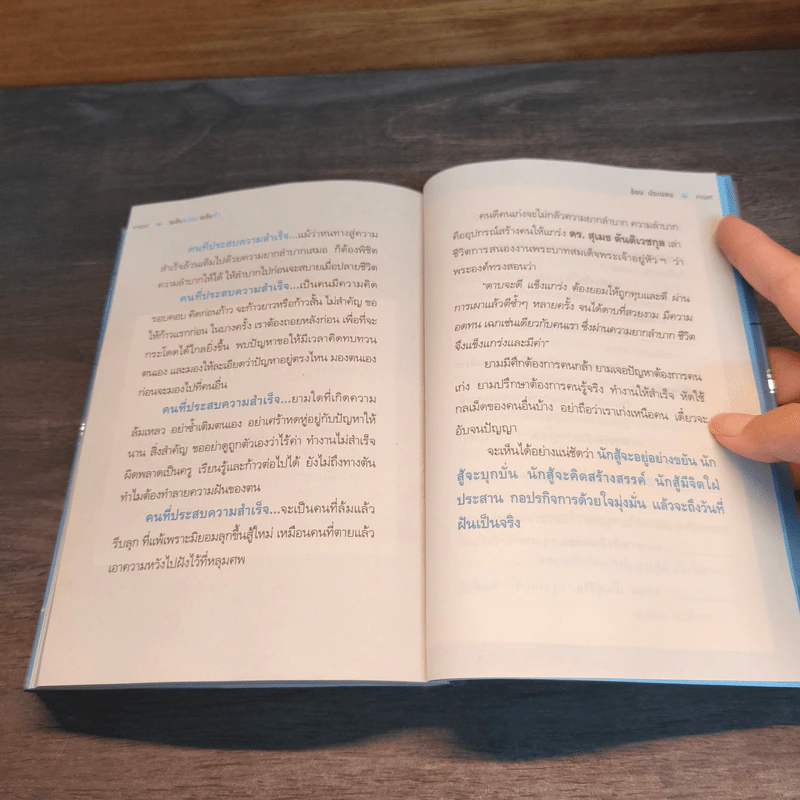 คนที่ประสบความสำเร็จ...แม้ว่าหนทางสู่ความ
สำเร็จล้วนเต็มไปด้วยความยากลำบากเสมอ ก็ต้องพิชิต
ความลำบากให้ได้ ให้ลำบากไปก่อนจะสบายเมื่อปลายชีวิต
คนที่ประสบความสำเร็จ...เป็นคนมีความคิด
รอบคอบ คิดก่อนก้าว จะก้าวยาวหรือก้าวสั้น ไม่สำคัญ ขอ
ให้ก้าวแรกก่อน ในบางครั้ง เราต้องถอยหลังก่อน เพื่อที่จะ
กระโดดได้ไกลยิ่งขึ้น พบปัญหาขอให้มีเวลาคิดทบทวน
ตนเอง และมองให้ละเอียดว่าปัญหาอยู่ตรงไหน มองตนเอง
ก่อนจะมองไปที่คนอื่น
คนที่ประสบความสำเร็จ...ยามใดที่เกิดความ
ล้มเหลว อย่าซ้ำเติมตนเอง อย่าเศร้าหดหู่อยู่กับปัญหาให้
นาน สิ่งสำคัญ ขออย่าดูถูกตัวเองว่าไร้ค่า ทำงานไม่สำเร็จ
ผิดพลาดเป็นครู เรียนรู้และก้าวต่อไปได้ ยังไม่ถึงทางตัน
ทำไมต้องทำลายความฝันของตน
คนที่ประสบความสำเร็จ...จะเป็นคนที่ล้มแล้ว
รีบลุก ที่แพ้เพราะมิยอมลุกขึ้นสู้ใหม่ เหมือนคนที่ตายแล้ว
เอาความหวังไปฝังไว้ที่หลุมศพ
คนดีคนเก่งจะไม่กลัวความยากลำบาก ความลำบาก
คืออุปกรณ์สร้างคนให้แกร่ง ดร. สุเมธ ตันติเวชกุล เล่า
ชีวิตการสนองงานพระบาทสมเด็จพระเจ้าอยู่หัว ๆ ว่า
พระองค์ทรงสอนว่า
"ดาบจะดี แข็งแกร่ง ต้องยอมให้ถูกทุบและตี ผ่าน
การเผาแล้วตีซ้ำๆ หลายครั้ง จนได้ดาบที่สวยงาม มีความ
อดทน เฉกเช่นเดียวกับคนเรา ซึ่งผ่านความยากลำบาก ชีวิต
จึงแข็งแกร่งและมีค่า"
ยามมีศึกต้องการคนกล้า ยามเจอปัญหาต้องการคน
เก่ง ยามปรึกษาต้องการคนรู้จริง ทำงานให้สำเร็จ หัดใช้
กลเม็ดของคนอื่นบ้าง อย่าถือว่าเราเก่งเหนือคน เดี๋ยวจะ
อับจนปัญญา
จะเห็นได้อย่างแน่ชัดว่า นักสู้จะอยู่อย่างขยัน นัก
สู้จะบุกบั่น นักสู้จะคิดสร้างสรรค์ นักสู้มีจิตใฝ่
ประสาน กอปรกิจการด้วยใจมุ่งมั่น แล้วจะถึงวันที่
ฝันเป็นจริง